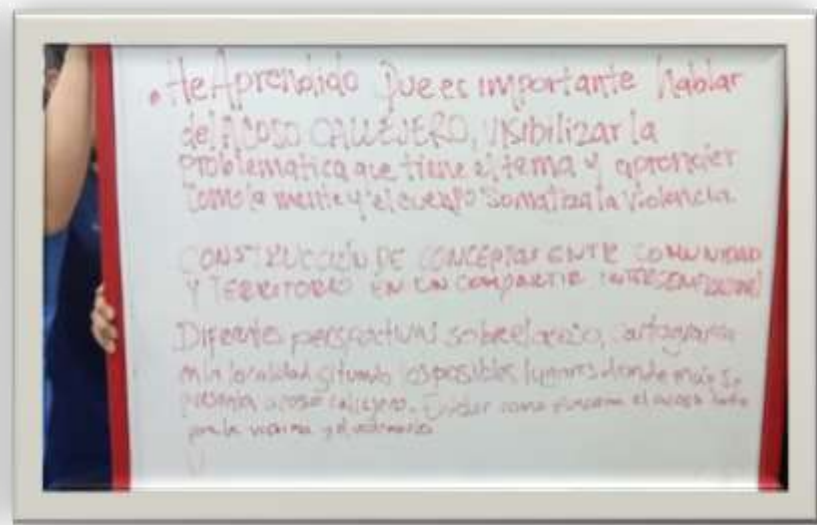 • He Aprendido Que es importante hablar
del ACOSO CALLEJERO, VISIBILIZAR la
problematica que tiene el tema y aprender
como la mente y el cuerpo somatiza la violencia.
CONSTRUCCIÓN DE CONCEPTOS ENTRE COMUNIDAD
Y TERRITORIO EN UN COMPARTIR INTERGENERACIONAL
Diferentes perspectivas sobre el acoso, cartografia
en la localidad situando los posibles lugares donde más se
presenta acoso callejero. como funciona el acoso
para la victima y el